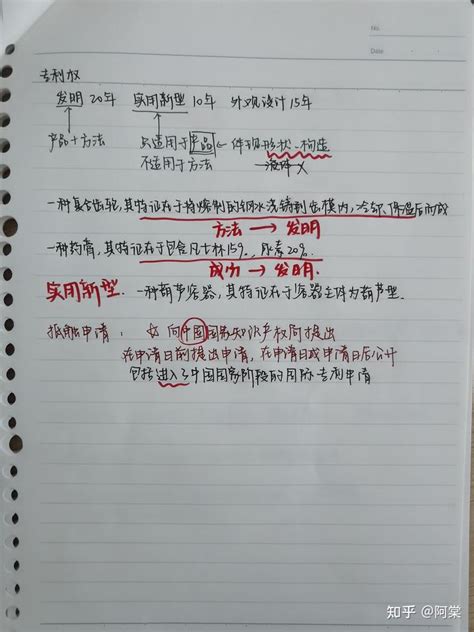 No.
Date
专利权
发明 20年 实用新型 10年 外观设计 15年
产品+方法 只适用于产品 ← 体现形状、构造
不适用于方法 液体 X
一种复合齿轮,其特征在于将熔制的钢水浇铸制齿模内,冷却、保温后而成
方法 → 发明
一种药膏,其特征在于包含凡士林15%、尿素20%.
成分 → 发明
实用新型. 一种葫芦容器,其特征在于容器主体为葫芦型.
抵触申请: 向中国国家知识产权局提出
在申请日前提出申请,在申请日或申请日后公开
包括进入了中国国家阶段的国际专利申请
知乎 @阿棠